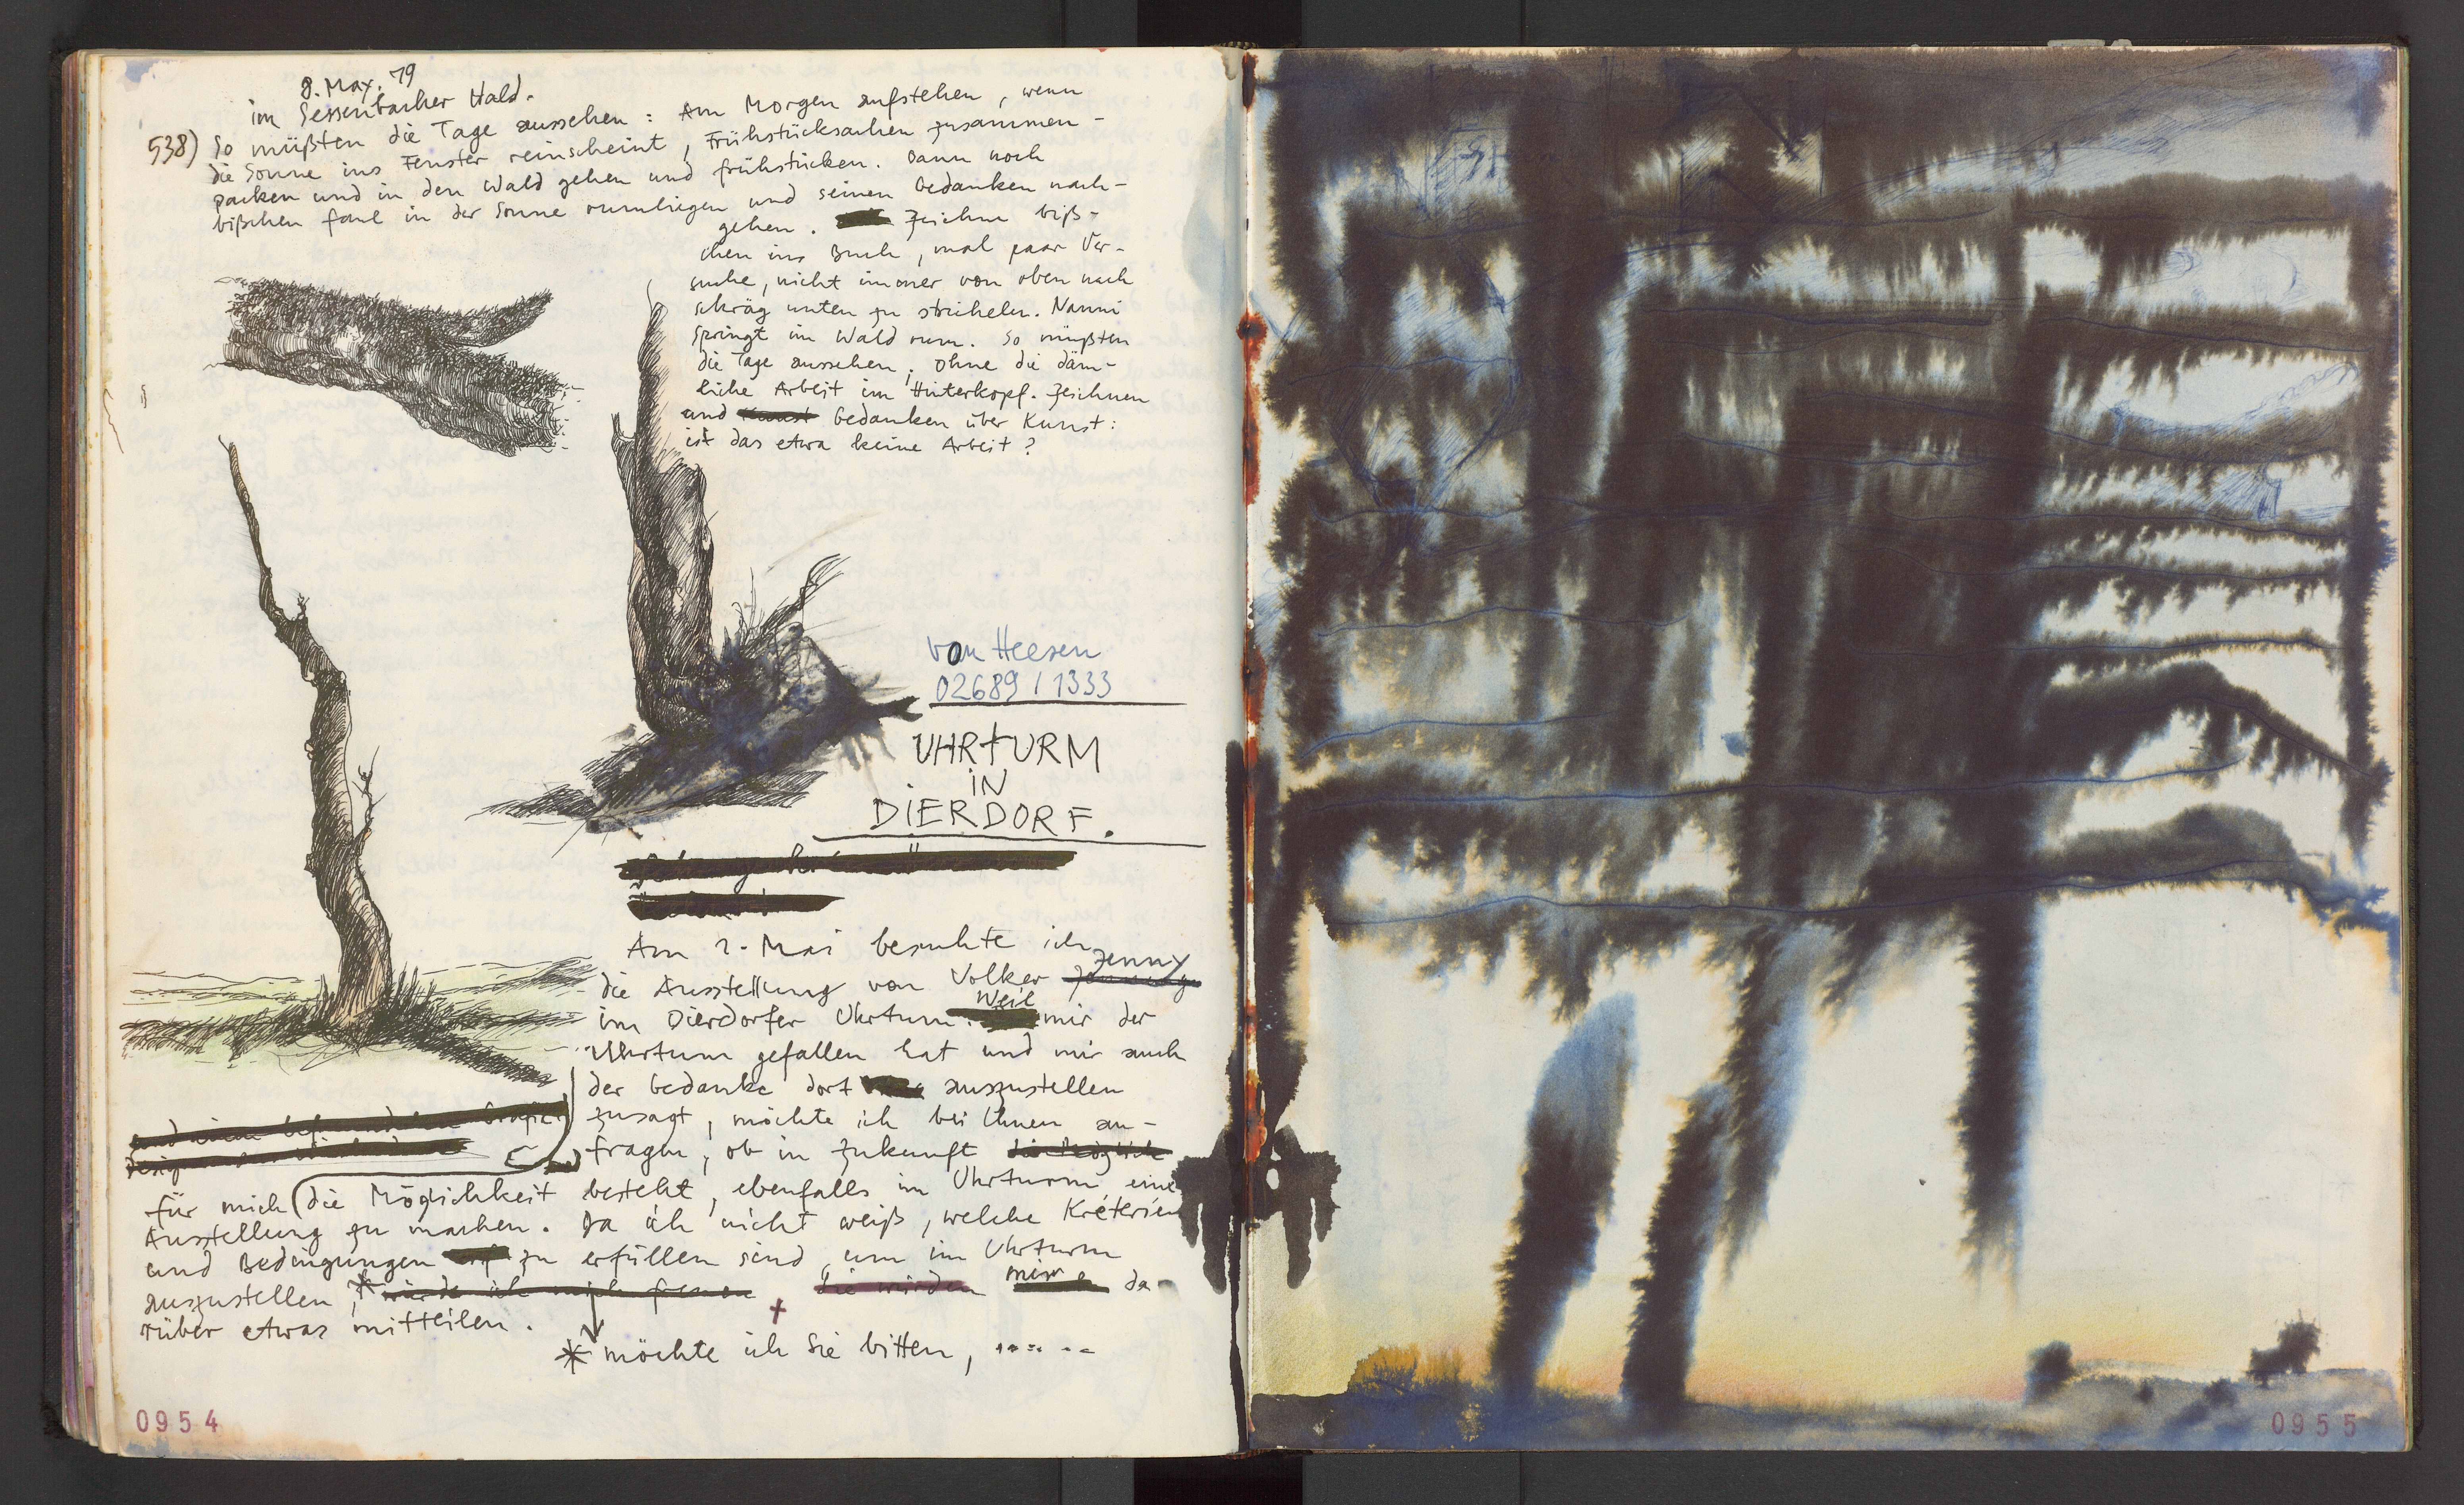 8. May. 79
im Sessenbacher Wald.
538) So müßten die Tage aussehen: Am Morgen aufstehen, wenn
die Sonne ins Fenster reinscheint, Frühstücksachen zusammen-
packen und in den Wald gehen und frühstücken. Dann noch
bißchen faul in der Sonne rumliegen und seinen Gedanken nach-
gehen. Zeichne biß-
chen ins Buch, mal paar Ver-
suche, nicht immer von oben nach
schräg unten zu stricheln. Nanni
springt im Wald rum. So müßten
die Tage aussehen, ohne die däm-
liche Arbeit im Hinterkopf. Zeichnen
und Kunst Gedanken über Kunst:
ist das etwa keine Arbeit?
von Heesen
02689/1333
UHRTURM
IN
DIERDORF.
Am 2. Mai besuchte ich
die Ausstellung von Volker Jenny
im Dierdorfer Uhrturm. Weil mir der
Uhrturm gefallen hat und mir auch
der Gedanke dort auszustellen
zusagt, möchte ich bei Ihnen an-
fragen, ob in Zukunft die Möglich
für mich (die Möglichkeit besteht, ebenfalls im Uhrturm eine
Ausstellung zu machen. Da ich nicht weiß, welche Kriterien
und Bedingungen zu erfüllen sind, um im Uhrturm
auszustellen, * würde ich mich freuen die würden mir da-
rüber etwas mitteilen.
* möchte ich Sie bitten, ......
0954
0955